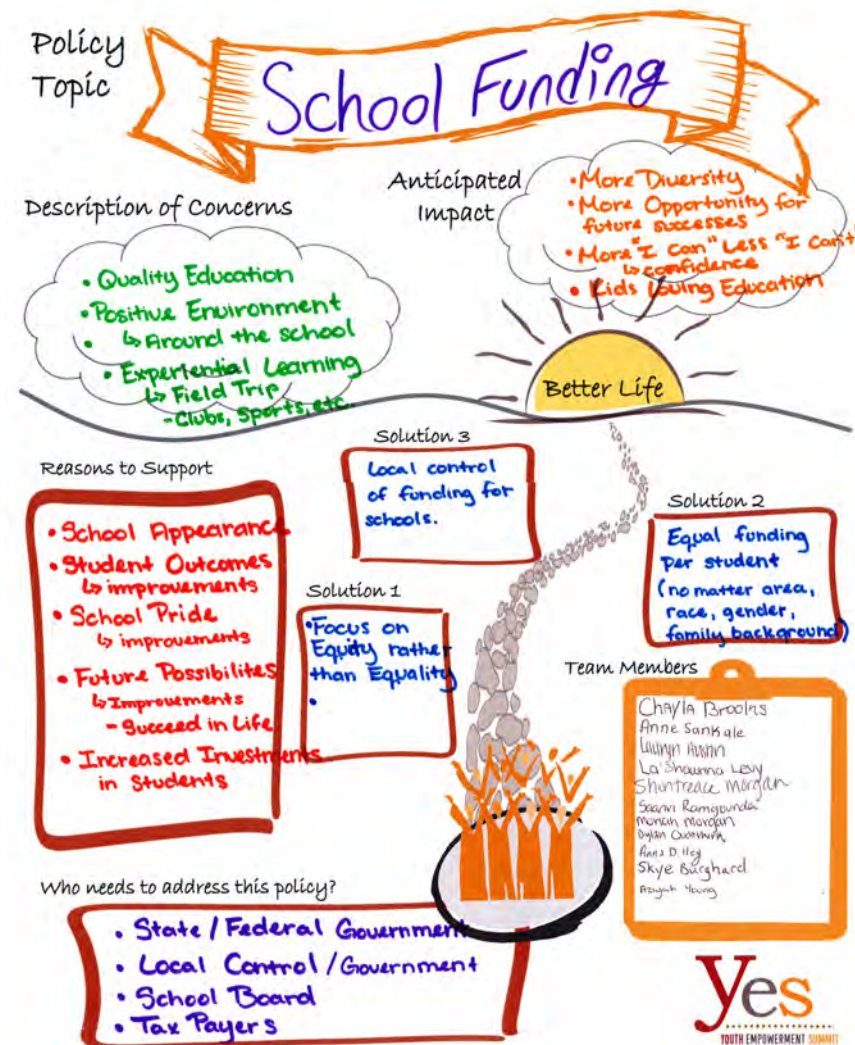 Policy
Topic
School Funding
Description of Concerns
• Quality Education
• Positive Environment
• ↳ Around the school
• Experiential Learning
↳ Field Trip
- Clubs, Sports, etc.
Anticipated
Impact
• More Diversity
• More Opportunity for
future successes
• More "I Can" Less "I Can't
↳ confidence
• Kids Loving Education
Better Life
Reasons to Support
• School Appearance
• Student Outcomes
↳ improvements
• School Pride
↳ improvements
• Future Possibilites
↳ Improvements
- Succeed in Life
• Increased Investments
in Students
Solution 3
Local control
of funding for
schools.
Solution 1
• Focus on
Equity rather
than Equality
•
Solution 2
Equal funding
per student
(no matter area,
race, gender,
family background)
Team Members
Chayla Brooks
Anne Sankale
La'Shawna Levy
Shuntreace Morgan
Morgan
Dylan
Anna Dilley
Skye Burghard
Aziyah Young
Who needs to address this policy?
• State / Federal Government
• Local Control / Government
• School Board
• Tax Payers
yes
YOUTH EMPOWERMENT SUMMIT